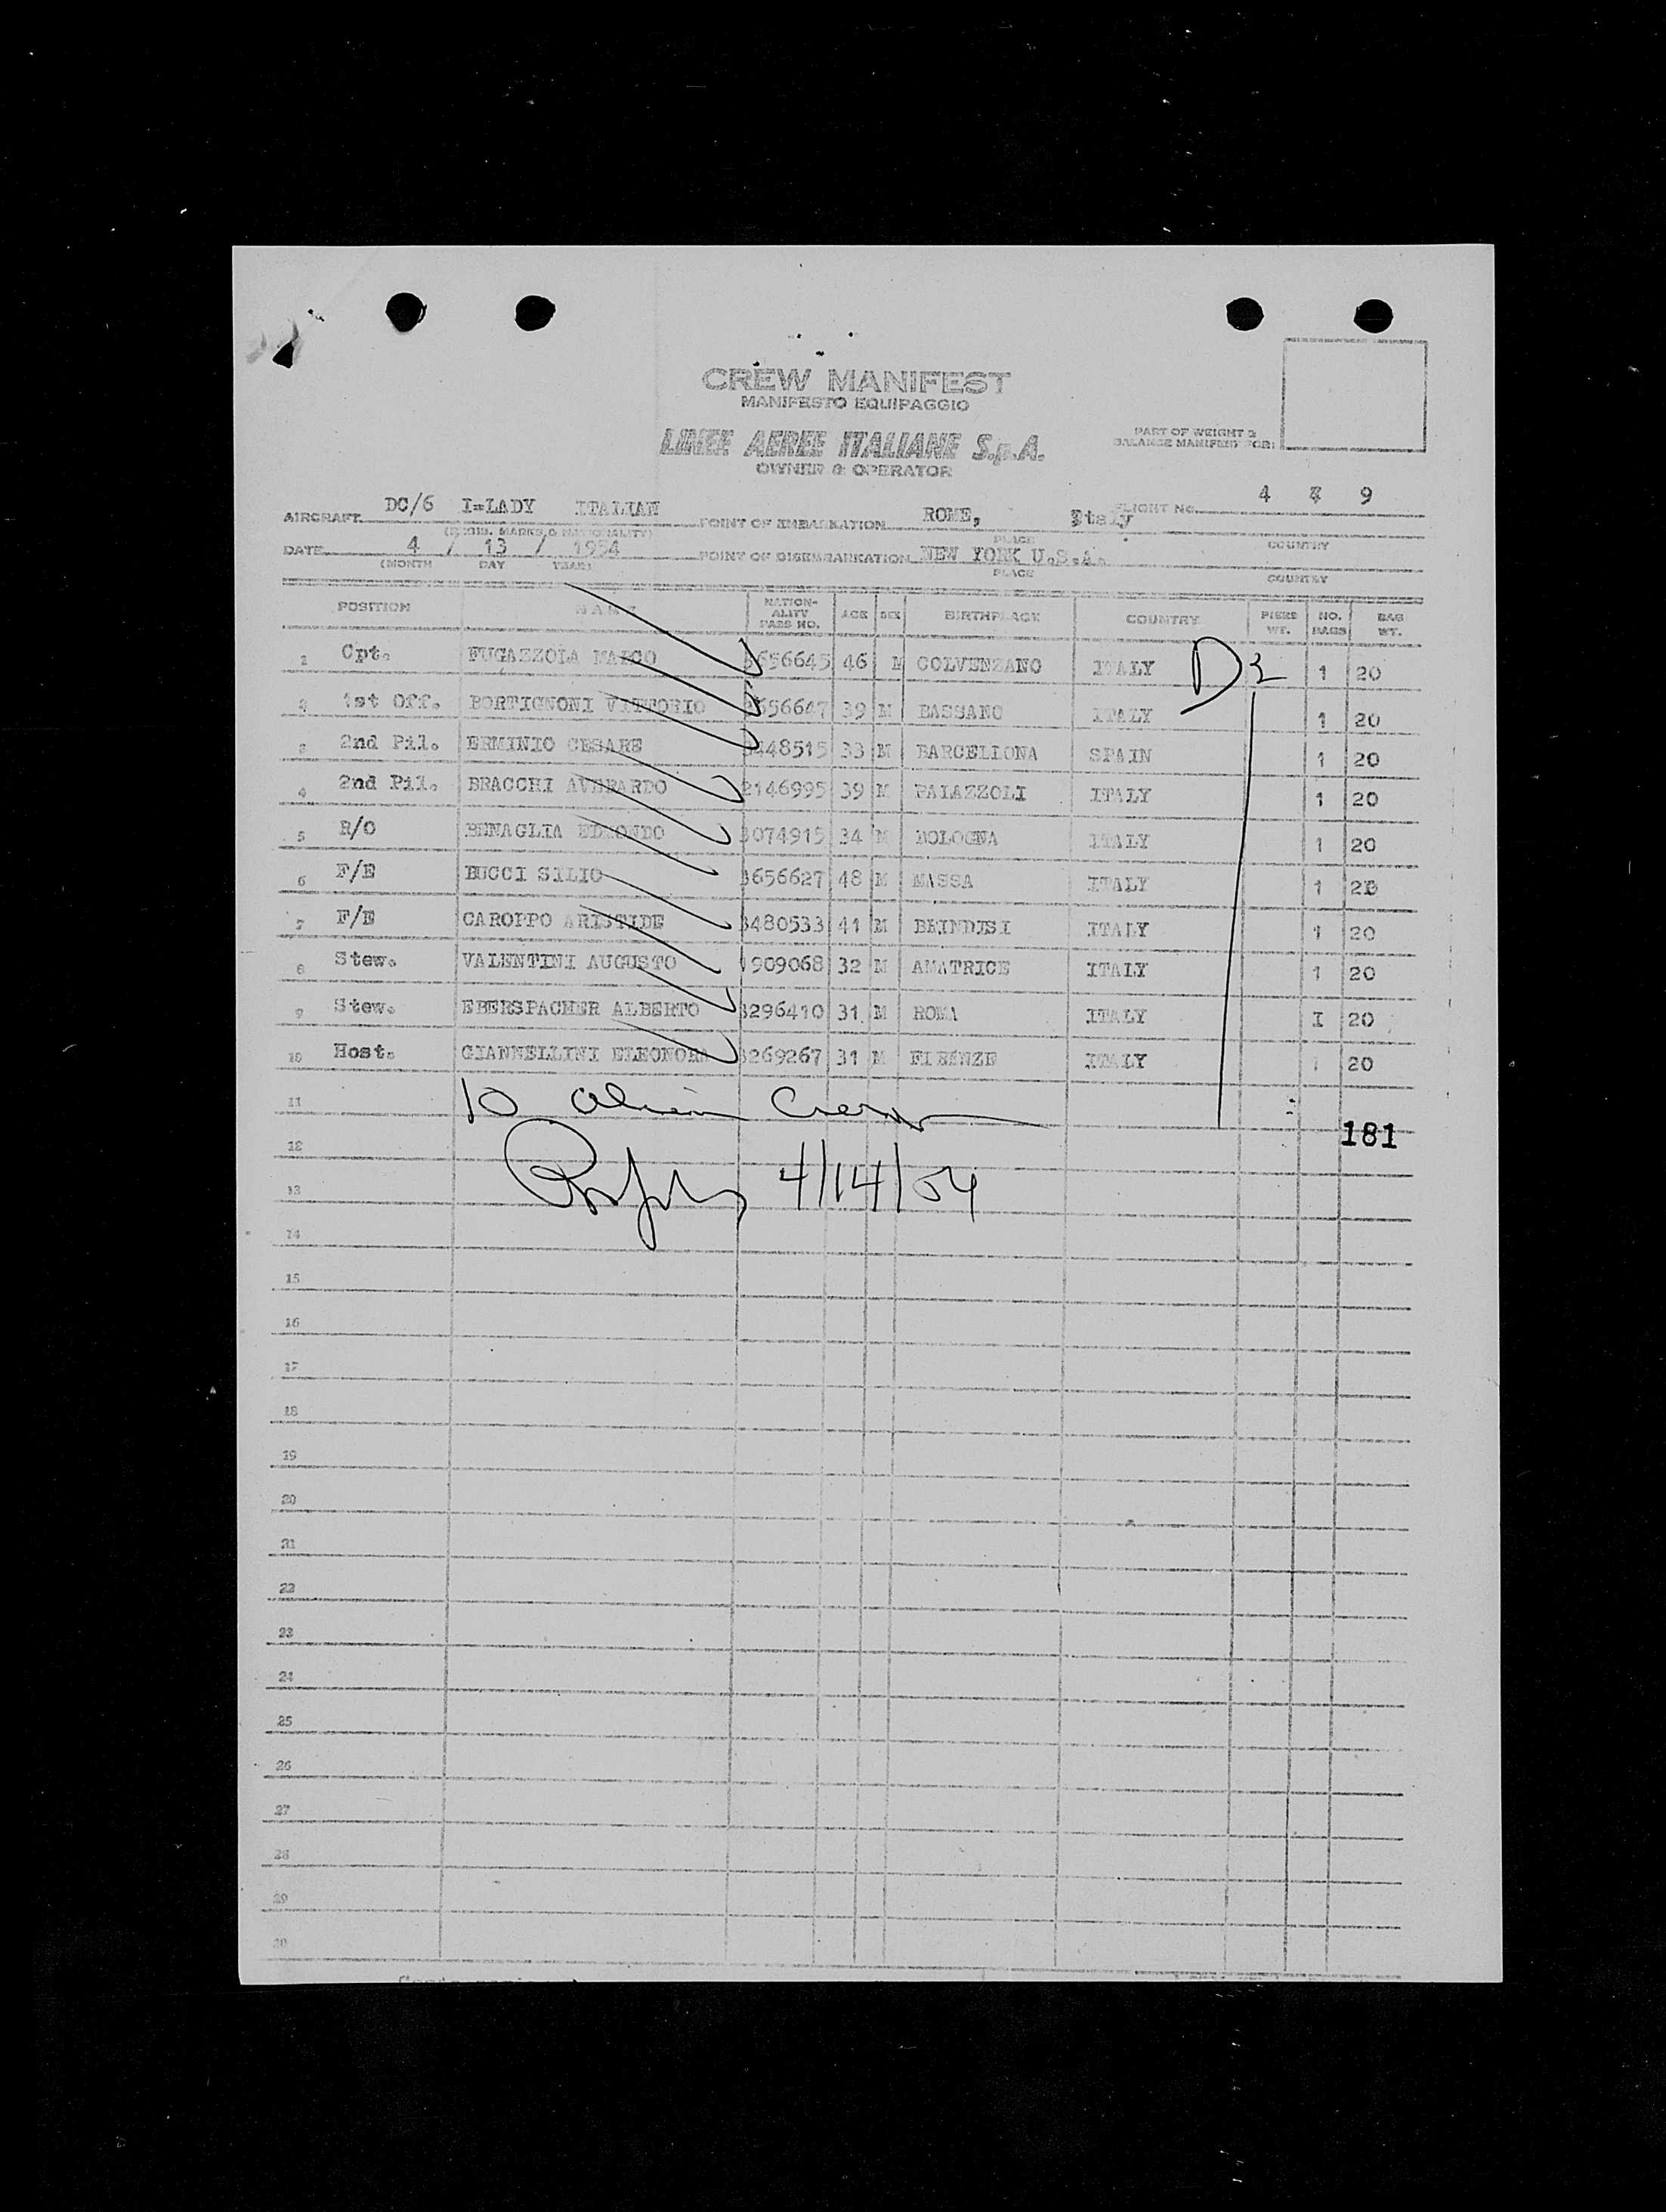 CREW MANIFEST
MANIFESTO EQUIPAGGIO
LINEE AEREE ITALIANE S.p.A.
OWNER & OPERATOR
PART OF WEIGHT &
BALANCE MANIFEST FOR:
AIRCRAFT DC/6 I=LADY ITALIAN POINT OF EMBARKATION ROME, Italy FLIGHT No. 4 9
(REGIS. MARKS & NATIONALITY) PLACE COUNTRY
DATE 4 / 13 / 1954 POINT OF DISEMBARKATION NEW YORK U.S.A.
(MONTH DAY YEAR) PLACE COUNTRY
POSITION NAME NATION-ALITY PASS NO. AGE SEX BIRTHPLACE COUNTRY PIERS WT. NO. BAGS BAG WT.
1 Cpt. FUGAZZOLA MARCO 3656645 46 M COLVENZANO ITALY D2 1 20
2 1st Off. BORTIGNONI VITTORIO 3656647 39 M BASSANO ITALY 1 20
3 2nd Pil. ERMINIO CESARE 3448515 33 M BARCELLONA SPAIN 1 20
4 2nd Pil. BRACCHI AVERARDO 2146995 39 M PALAZZOLI ITALY 1 20
5 R/O BENAGLIA EDMONDO 3074915 34 M BOLOGNA ITALY 1 20
6 F/E BUCCI SILIO 3656627 48 M MASSA ITALY 1 20
7 F/E CAROPPO ARISTIDE 3480533 41 M BRINDISI ITALY 1 20
8 Stew. VALENTINI AUGUSTO 1909068 32 M AMATRICE ITALY 1 20
9 Stew. EBERSPACHER ALBERTO 3296410 31 M ROMA ITALY I 20
10 Host. GIANNELLINI ELEONORA 3269267 31 M FIRENZE ITALY 1 20
11 10 Alien Crew
12 181
13 4/14/54
14
15
16
17
18
19
20
21
22
23
24
25
26
27
28
29
30